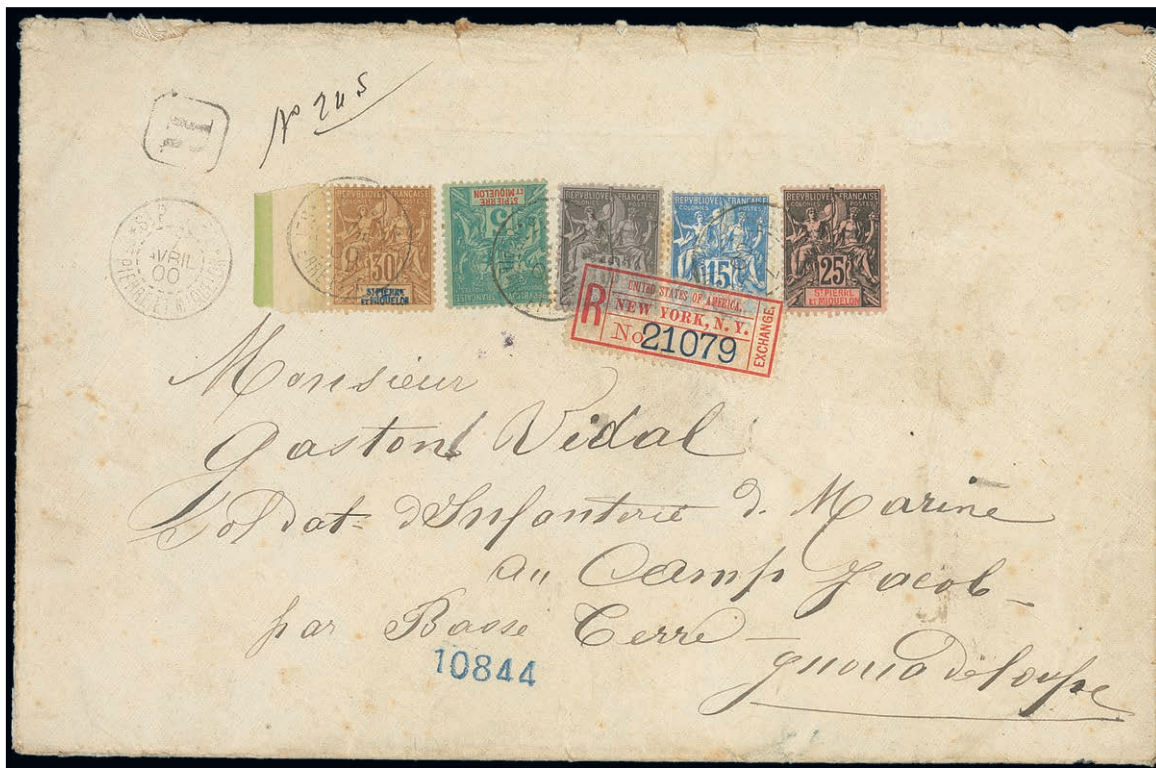 R
No 245
ST PIERRE ET MIQUELON
AVRIL
00
REPUBLIQUE FRANÇAISE
COLONIES POSTES
30
ST PIERRE
ET MIQUELON
ST PIERRE
ET MIQUELON
5
REPUBLIQUE FRANÇAISE
REPUBLIQUE FRANÇAISE
COLONIES POSTES
REPUBLIQUE FRANÇAISE
COLONIES POSTES
15
REPUBLIQUE FRANÇAISE
COLONIES POSTES
25
ST PIERRE
ET MIQUELON
R
UNITED STATES OF AMERICA.
NEW YORK, N. Y.
No 21079
EXCHANGE
Monsieur
Gaston Vidal
Soldat d'Infanterie d. Marine
au Camp Jacob
par Basse Terre
10844